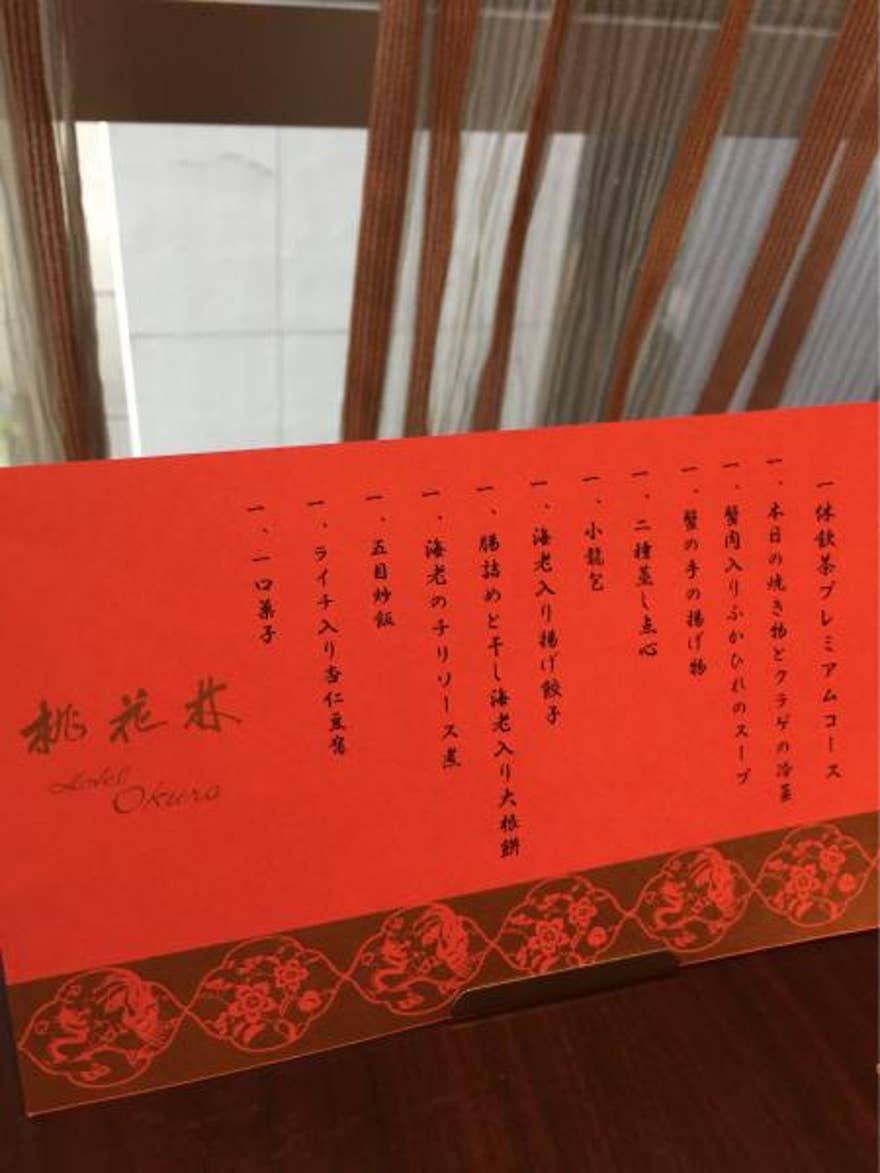 一休飲茶プレミアムコース
一、本日の焼き物とクラゲの冷菜
一、蟹肉入りふかひれのスープ
一、蟹の手の揚げ物
一、二種蒸し点心
一、小籠包
一、海老入り揚げ餃子
一、腸詰めと干し海老入り大根餅
一、海老のチリソース煮
一、五目炒飯
一、ライチ入り杏仁豆腐
一、一口菓子
桃花林
Hotel
Okura